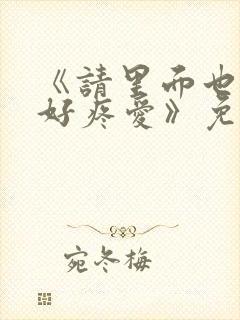 《請里而也
好疼愛》免
宛冬梅